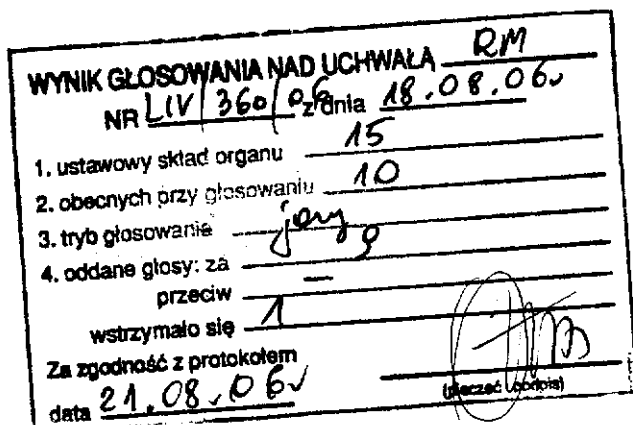 WYNIK GŁOSOWANIA NAD UCHWAŁĄ RM
NR LIV/360/06 z dnia 18.08.06
1. ustawowy skład organu 15
2. obecnych przy głosowaniu 10
3. tryb głosowania jawny
4. oddane głosy: za 9
przeciw —
wstrzymało się 1
Za zgodność z protokołem
data 21.08.06
(pieczęć i podpis)